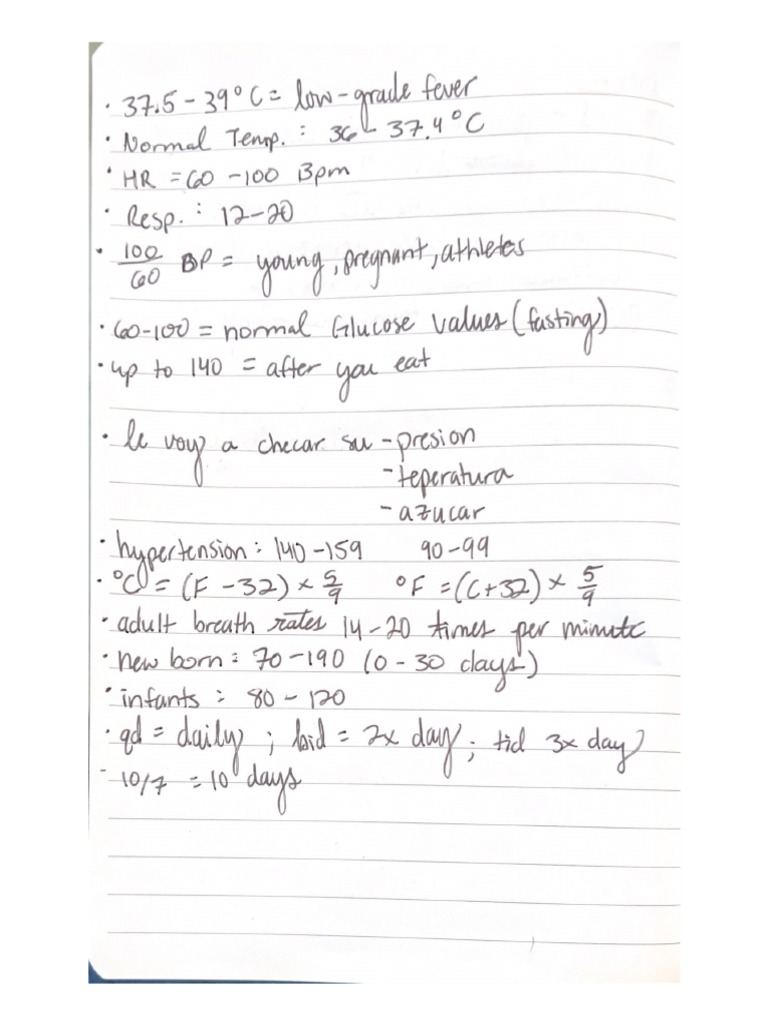 · 37.5 - 39°C = low-grade fever
· Normal Temp. : 36 - 37.4°C
· HR = 60 - 100 Bpm
· Resp. : 12-20
· 100/60 BP = young, pregnant, athletes
· 60-100 = normal Glucose values (fasting)
· up to 140 = after you eat
· le voy a checar su - presion
- teperatura
- azucar
· hypertension : 140-159 90-99
· °C = (F - 32) × 5/9 °F = (C+32) × 5/9
· adult breath rates 14-20 times per minute
· new born : 70-190 (0-30 days)
· infants : 80 - 120
· qd = daily ; bid = 2x day ; tid 3x day
- 10/7 = 10 days